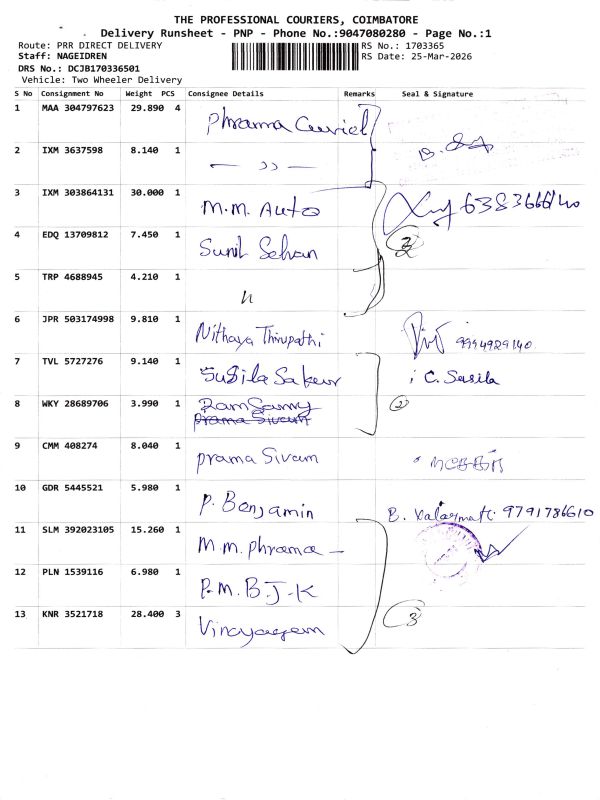 THE PROFESSIONAL COURIERS, COIMBATORE
Delivery Runsheet - PNP - Phone No.:9047080280 - Page No.:1
Route: PRR DIRECT DELIVERY
Staff: NAGEIDREN
DRS No.: DCJB170336501
Vehicle: Two Wheeler Delivery
RS No.: 1703365
RS Date: 25-Mar-2026
S No Consignment No Weight PCS Consignee Details Remarks Seal & Signature
1 MAA 304797623 29.890 4 Phrama
2 IXM 3637598 8.140 1 — ,, —
3 IXM 303864131 30.000 1 M.M. Auto
4 EDQ 13709812 7.450 1 Sunil Sehan
5 TRP 4688945 4.210 1 "
6 JPR 503174998 9.810 1 Nithaya Thirupathi 9994929140
7 TVL 5727276 9.140 1 Susila C. Susila
8 WKY 28689706 3.990 1 2
prama Sivam
9 CMM 408274 8.040 1 prama Sivam
10 GDR 5445521 5.980 1 P. Benjamin B. Valarmati 9791786610
11 SLM 392023105 15.260 1 M.M. phrama —
12 PLN 1539116 6.980 1 P.M.B.J-K
13 KNR 3521718 28.400 3 Vinayagam 3